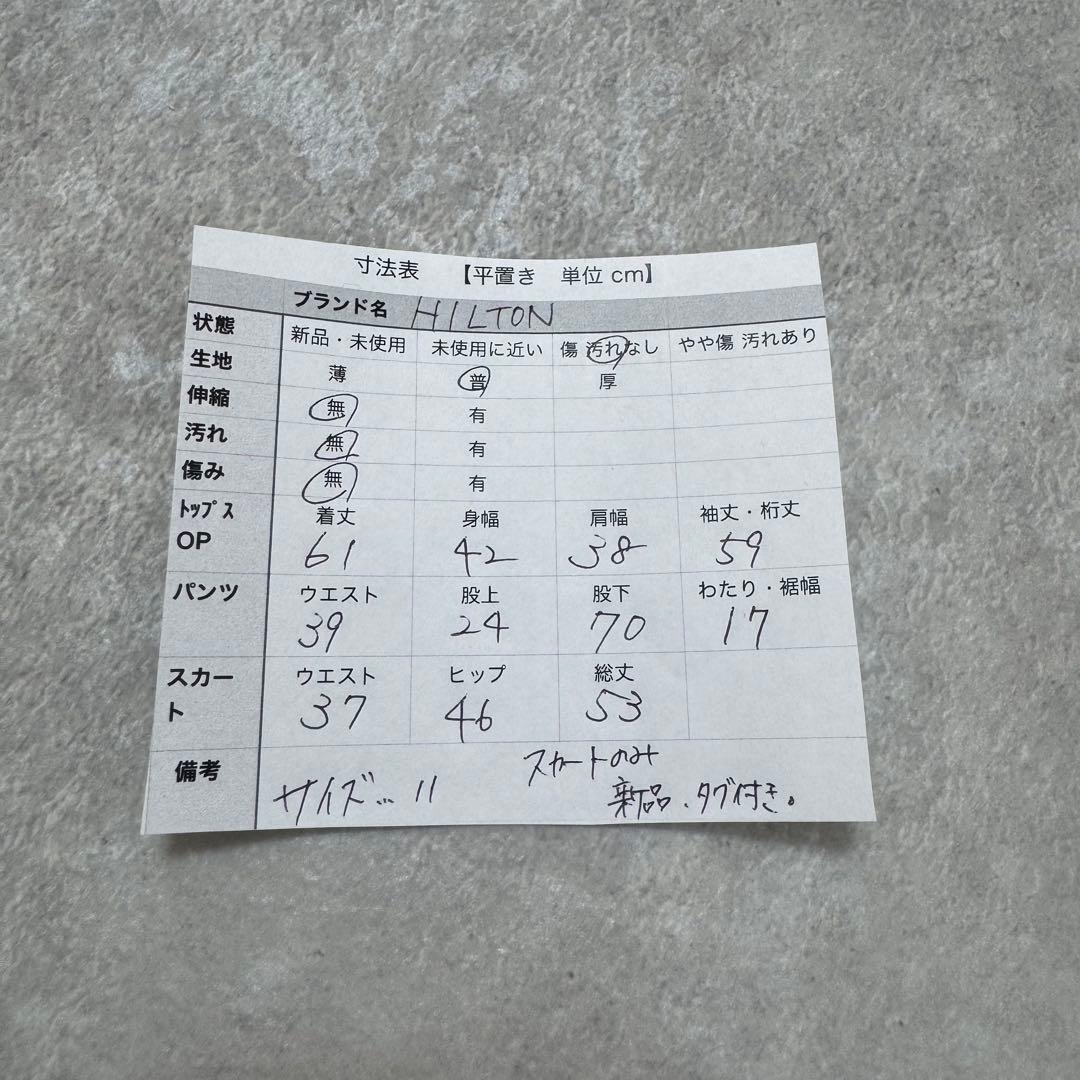 寸法表 【平置き 単位 cm】
ブランド名 HILTON
状態 新品・未使用 未使用に近い 傷 汚れなし やや傷 汚れあり
生地 薄 普 厚
伸縮 無 有
汚れ 無 有
傷み 無 有
ﾄｯﾌﾟｽ OP 着丈 身幅 肩幅 袖丈・裄丈
61 42 38 59
パンツ ウエスト 股上 股下 わたり・裾幅
39 24 70 17
スカート ウエスト ヒップ 総丈
37 46 53
備考 サイズ… 11 スカートのみ
新品、タグ付き。